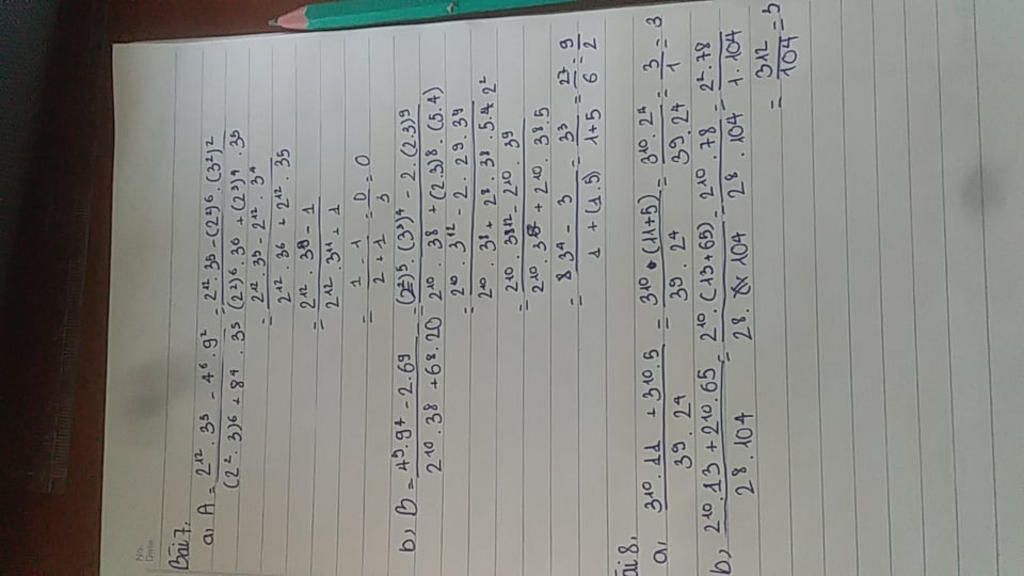 No.
Date
Bài 7.
a, A = 2^12 . 3^5 - 4^6 . 9^2 / (2^2 . 3)^6 + 8^4 . 3^5 = 2^12 . 3^5 - (2^2)^6 . (3^2)^2 / (2^2)^6 . 3^6 + (2^3)^4 . 3^5
= 2^12 . 3^5 - 2^12 . 3^4 / 2^12 . 3^6 + 2^12 . 3^5
= 2^12 . 3^5 - 1 / 2^12 . 3^1 + 1
= 1 - 1 / 2 + 1 = 0 / 3 = 0
b, B = 4^5 . 9^4 - 2 . 6^9 / 2^10 . 3^8 + 6^8 . 20 = (2^2)^5 . (3^2)^4 - 2 . (2.3)^9 / 2^10 . 3^8 + (2.3)^8 . (5.4)
= 2^10 . 3^12 - 2 . 2^9 . 3^9 / 2^10 . 3^8 + 2^8 . 3^8 . 5 . 2^2
= 2^10 . 3^12 - 2^10 . 3^9 / 2^10 . 3^8 + 2^10 . 3^8 . 5
= 3^4 - 3 / 1 + (1.5) = 3^3 / 1+5 = 27 / 6 = 9 / 2
ài 8.
a, 3^10 . 11 + 3^10 . 5 / 3^9 . 2^4 = 3^10 . (11+5) / 3^9 . 2^4 = 3^10 . 2^4 / 3^9 . 2^4 = 3 / 1 = 3
b, 2^10 . 13 + 2^10 . 65 / 2^8 . 104 = 2^10 . (13+65) / 2^8 . 104 = 2^10 . 78 / 2^8 . 104 = 2^2 . 78 / 1 . 104
= 312 / 104 = 3